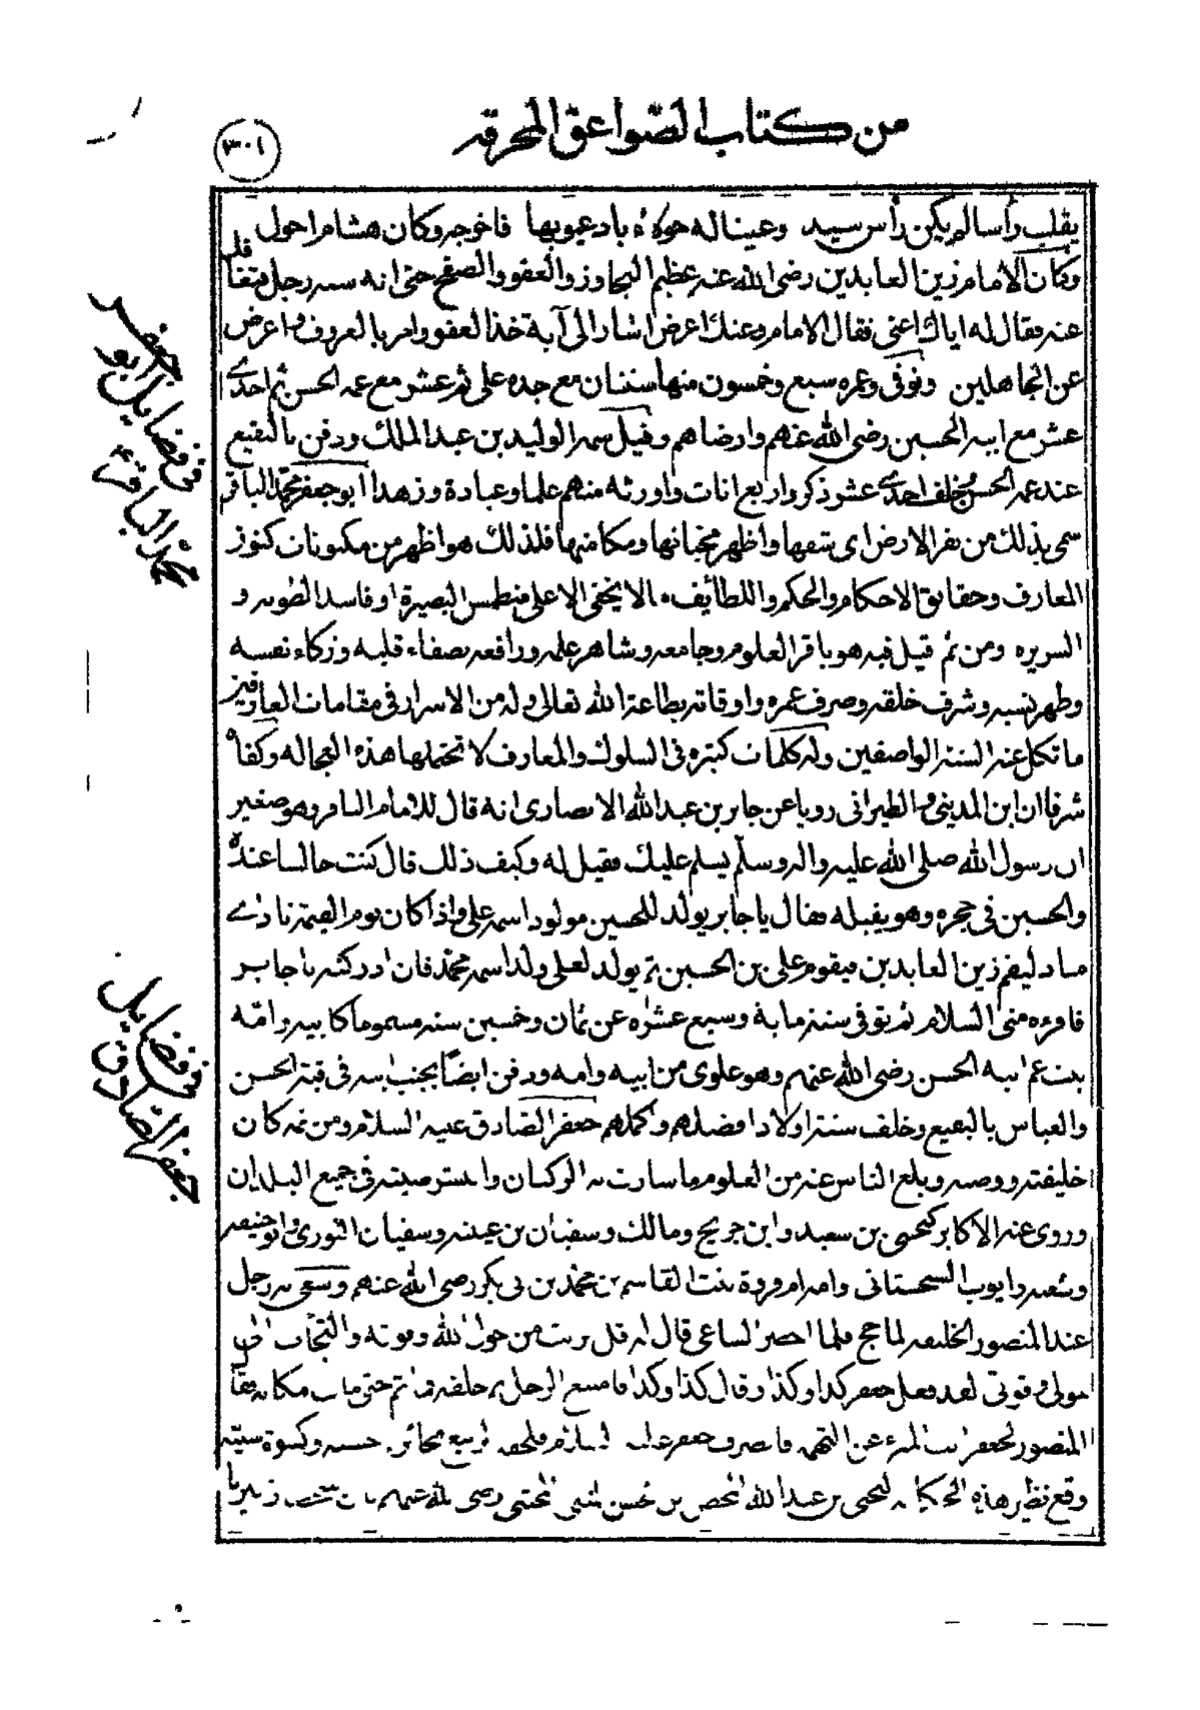 من كتاب الصواعق المحرقه
٣٠١
يقلب رأسا لم يكن رأس سيد وعينا له حولاء باد عيوبها فاخرجه وكان هشام احول
وكان الامام زين العابدين رضى الله عنه عظيم التجاوز والعفو والصفح حتى انه سبه رجل فتغافل
عنه فقال له اياك اعنى فقال الامام وعنك اعرض اشار الى آية خذ العفو وامر بالعروف واعرض
عن الجاهلين وتوفى وعمره سبع وخمسون منها سنتان مع جده على ثم عشر مع عمه الحسن ثم احدى
عشر مع ابيه الحسين رضى الله عنهم وارضاهم وقيل سمه الوليد بن عبد الملك ودفن بالبقيع
عند عمه الحسن مخلف احدى عشر ذكر واربع اناث واورثه منهم علما وعبادة وزهدا ابو جعفر محمد الباقر
سمى بذلك من بقر الارض اى شقها واظهر مخبياتها ومكامنها فلذلك هو اظهر من مكنونات كنوز
المعارف وحقايق الاحكام والحكم واللطائف مالا يخفى الا على منطمس البصيرة او فاسد الطويه و
السريره ومن ثم قيل فيه هو باقر العلوم وجامعه وشاهر علمه ورافعه بصفاء قلبه وزكاء نفسه
وطهر نسبه وشرف خلقه وصرف عمره واوقاته بطاعة الله تعالى وله من الاسرار فى مقامات العارفين
ما تكل عنه السنة الواصفين وله كلمات كثيره فى السلوك والمعارف لا تحتملها هذه العجاله وكفاه
شرفا ان ابن المدينى والطبرانى رويا عن جابر بن عبد الله الانصارى انه قال للامام الباقر وهو صغير
ان رسول الله صلى الله عليه واله وسلم يسلم عليك فقيل له وكيف ذلك قال كنت جالسا عنده
والحسين فى حجره وهو يقبله فقال يا جابر يولد للحسين مولود اسمه على واذا كان يوم القيمة نادى
مناد ليقم زين العابدين فيقوم على بن الحسين ثم يولد لعلى ولد اسمه محمد فان ادركته يا جابر
فاقرءه منى السلام ثم توفى سنة ماية وسبع عشره عن ثمان وخمسين سنه مسموما كابيه وامّه
بنت عم ابيه الحسن رضى الله عنهم وهو علوى من ابيه وامه ودفن ايضا بجنب ابيه فى قبة الحسن
والعباس بالبقيع وخلف ستة اولاد افضلهم واكملهم جعفر الصادق عليه السلام ومن ثمه كان
خليفته ووصيه وبلغ الناس عنه من العلوم ما سارت به الركبان وانتشر صيته فى جميع البلدان
وروى عنه الاكابر كيحيى بن سعيد وابن جريج ومالك وسفيان بن عيينه وسفيان الثورى وابو حنيفه
وشعبه وايوب السجستانى وامه ام فروة بنت القاسم بن محمد بن ابى بكر رضى الله عنهم وسعى به رجل
عند المنصور الخليفه لما حج فلما احضر الساعى قال له قل برئت من حول الله وقوته والتجأت الى
حولى وقوتى لقد فعل جعفر كذا وكذا وقال كذا وكذا فامتنع الرجل ثم حلف فما تم حتى مات مكانه فقال
المنصور لجعفر عن التهمه فانصرف جعفر فلحقه الربيع بجائزه حسنه وكسوة سنيه
وقع نظير هذه الحكايه ليحيى بن عبد الله المحض بن حسن المثنى المجتبى رضى الله عنهم
فى فضايل ابو جعفر
محمد الباقر ع
فى فضايل
جعفر الصادق